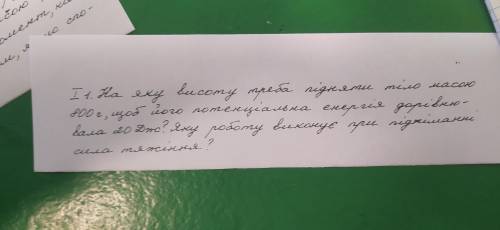 I 1. На яку висоту треба підняти тіло масою
800 г, щоб його потенціальна енергія дорівню-
вала 20 Дж? Яку роботу виконує при підніманні
сила тяжіння?